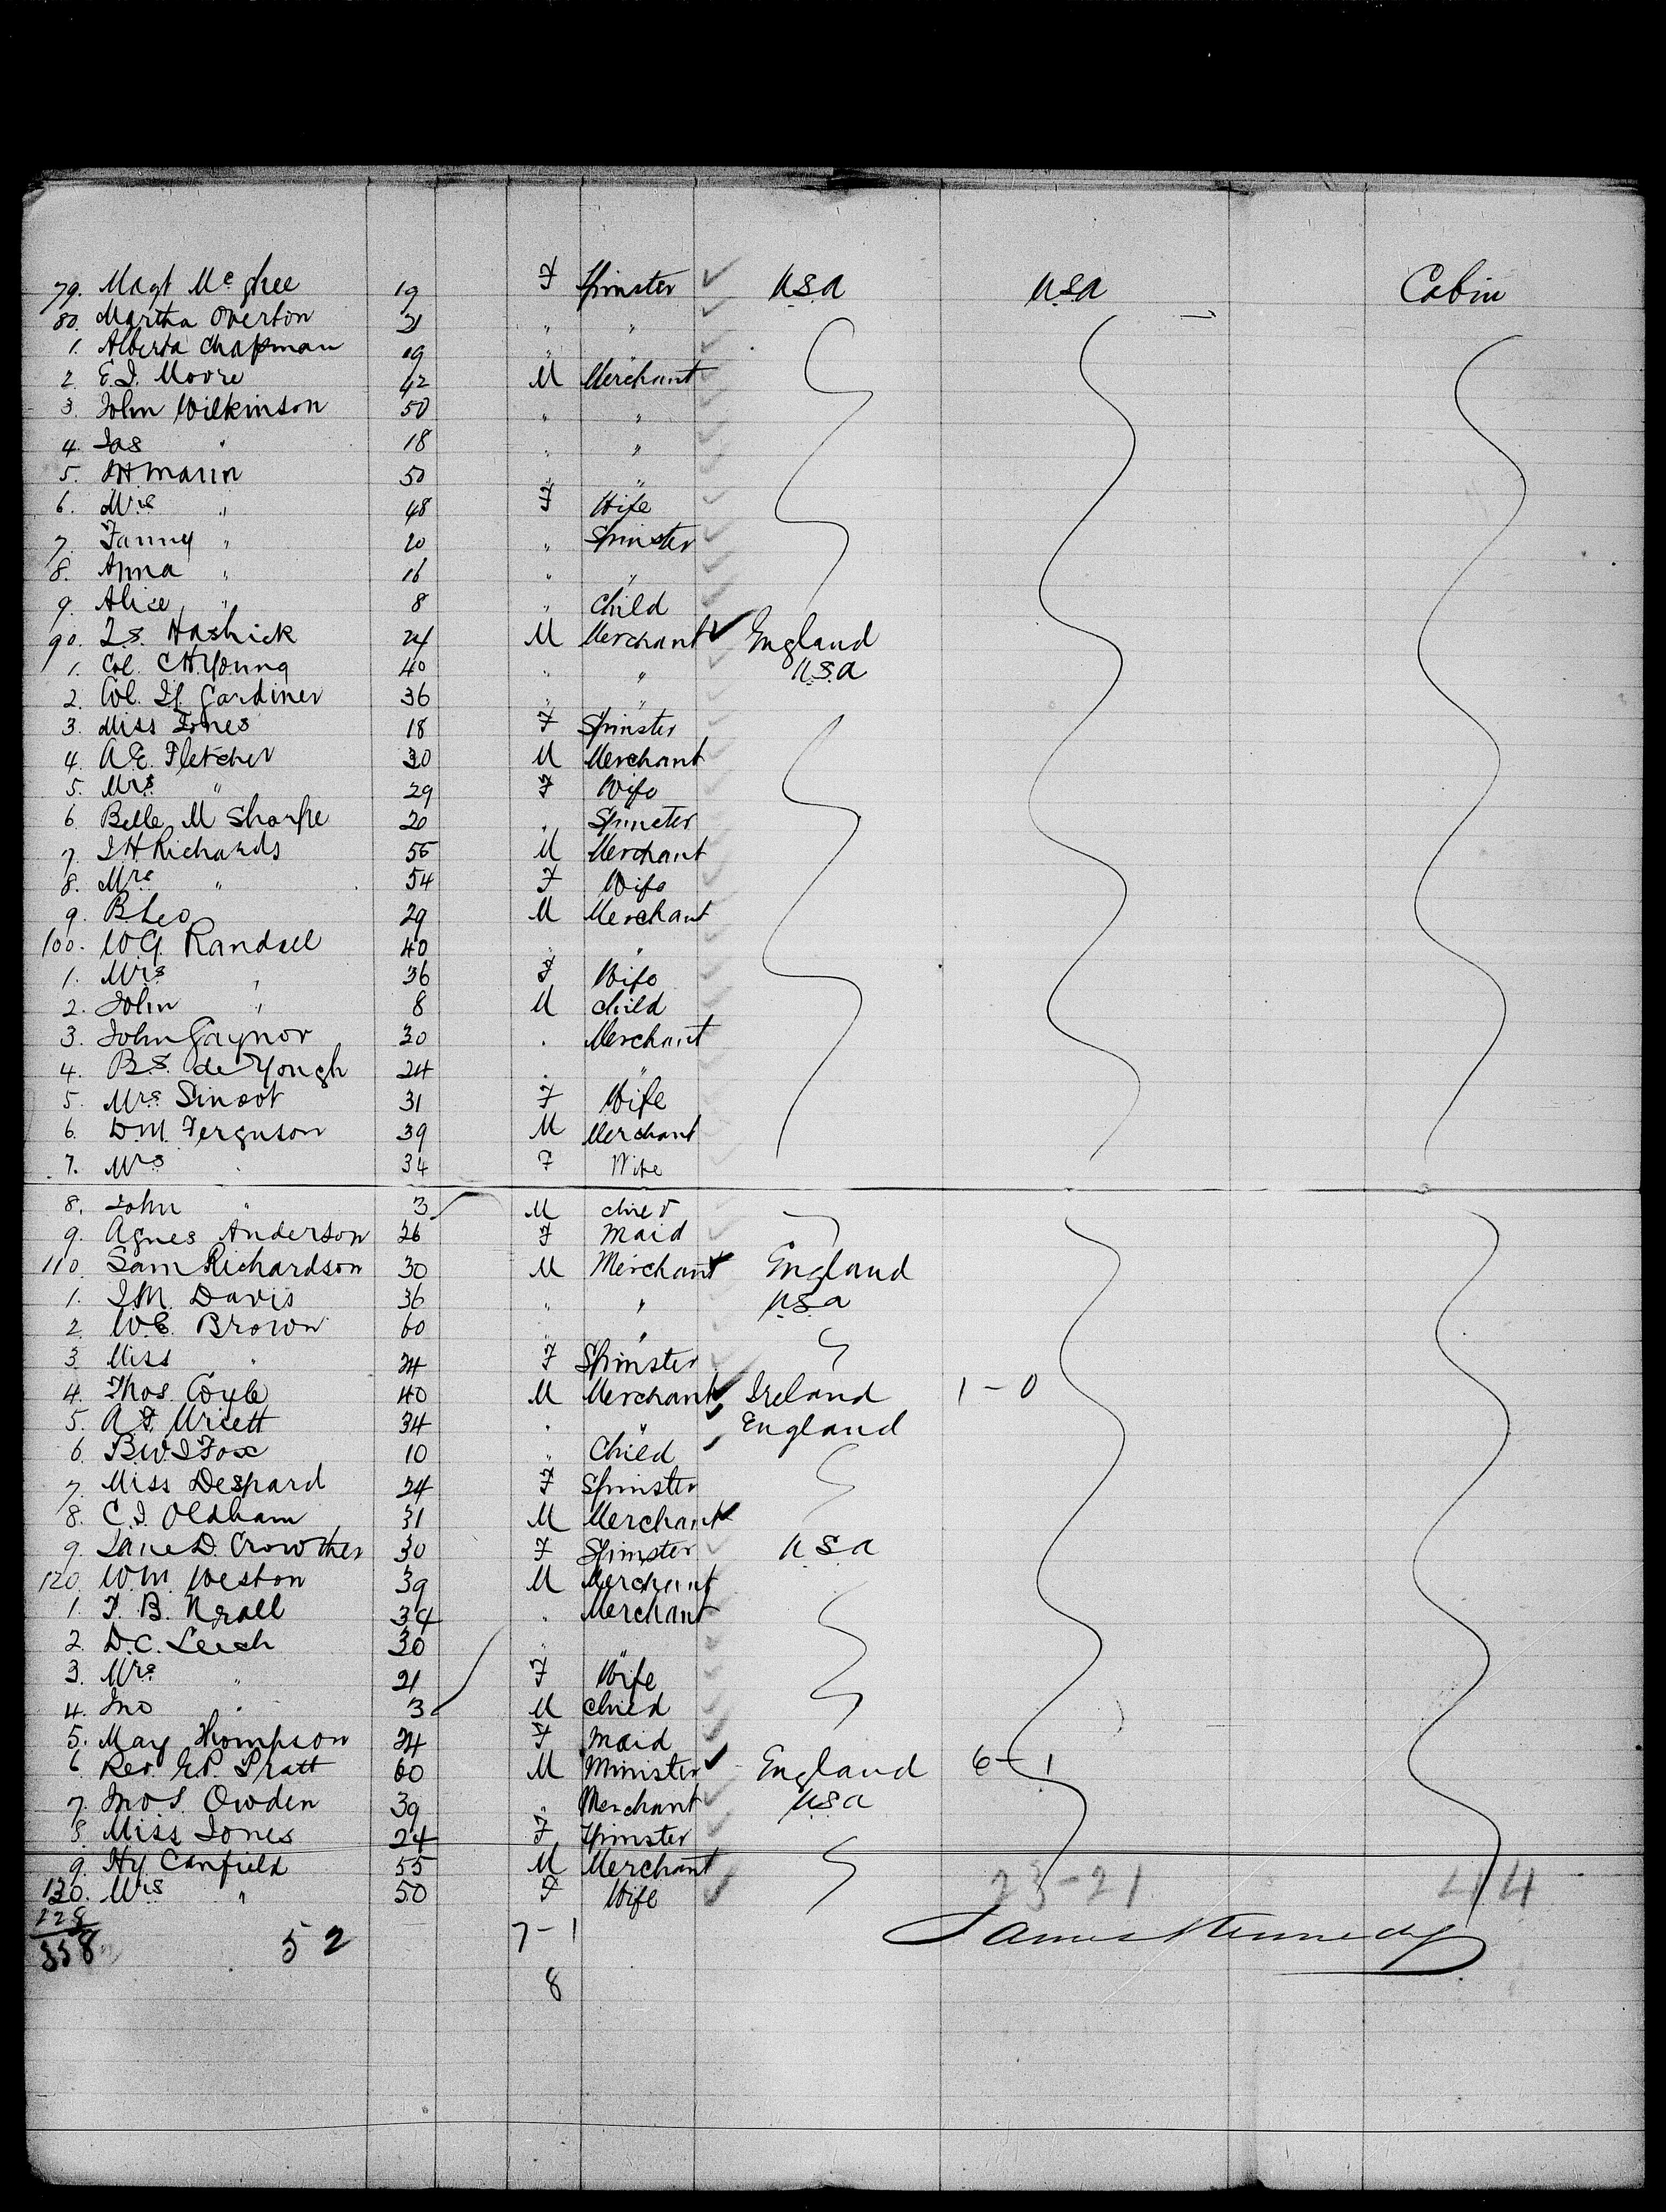 79. Magt Mc Ghee 19 F Spinster USA USA Cabin
80. Martha Overton 21 " "
1. Alberta Chapman 19 "
2. E.J. Moore 42 M Merchant
3. John Wilkinson 50 " "
4. Jas " 18 " "
5. JH Marin 50 " "
6. Mrs " 48 F Wife
7. Fanny " 20 " Spinster
8. Anna " 16 " "
9. Alice " 8 " Child
90. Hashick 24 M Merchant England
1. Col. CH Young 40 " " USA
2. Col. Gardiner 36 " "
3. Miss Jones 18 F Spinster
4. A.E. Fletcher 30 M Merchant
5. Mrs " 29 F Wife
6. Belle M Sharpe 20 " Spinster
7. J H Richards 55 M Merchant
8. Mrs " 54 F Wife
9. B Leo 29 M Merchant
100. W.G. Randall 40 " "
1. Mrs " 36 F Wife
2. John " 8 M Child
3. John Gaynor 30 " Merchant
4. B.S. de Yongh 24 " "
5. Mrs Sinoot 31 F Wife
6. D.M. Ferguson 39 M Merchant
7. Mrs " 34 F Wife
8. John " 3 M Child
9. Agnes Anderson 26 F Maid
110 Sam Richardson 30 M Merchant England
1. J.M. Davis 36 " " USA
2. W.E. Brown 60 " "
3. Miss " 24 F Spinster
4. Thos. Coyle 40 M Merchant Ireland 1-0
5. A.F. 34 " " England
6. Fox 10 " Child
7. Miss Despard 24 F Spinster
8. C.J. Oldham 31 M Merchant
9. Jane D. Crowther 30 F Spinster USA
120. Wm Weston 39 M Merchant
1. F. B. 34 " Merchant
2. D.C. Leech 30 " "
3. Mrs " 21 F Wife
4. Jno " 3 M Child
5. May Thompson 24 F Maid
6 Rev. E.P. Pratt 60 M Minister England 6-1
7. Jno S. Owden 39 " Merchant USA
8. Miss Jones 24 F Spinster
9. Hy Canfield 55 M Merchant
130. Mrs " 50 F Wife 23-21 44
228
358 52 7-1 James Kennedy
8